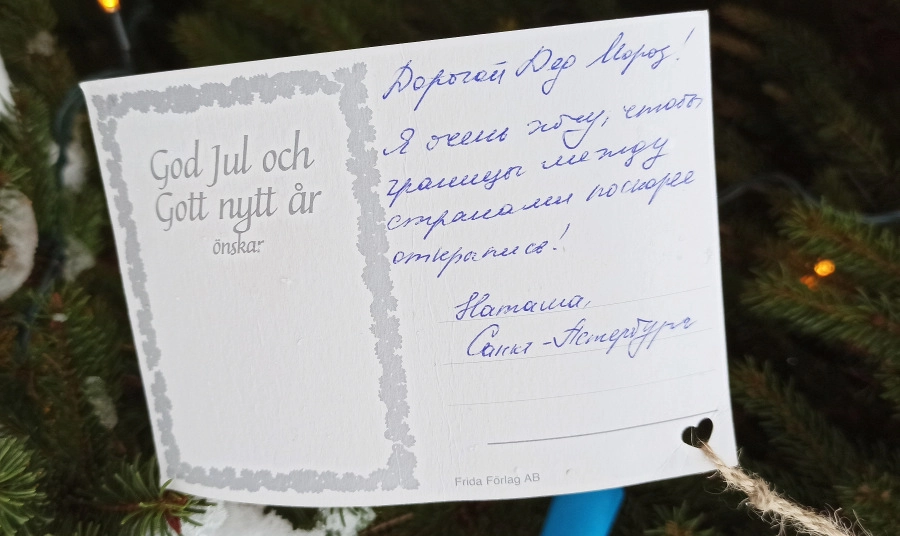 God Jul och
Gott nytt år
önskar
Дорогой Дед Мороз!
Я очень хочу, чтобы
границы между
странами поскорее
открылись!
Наташа,
Санкт-Петербург
Frida Förlag AB